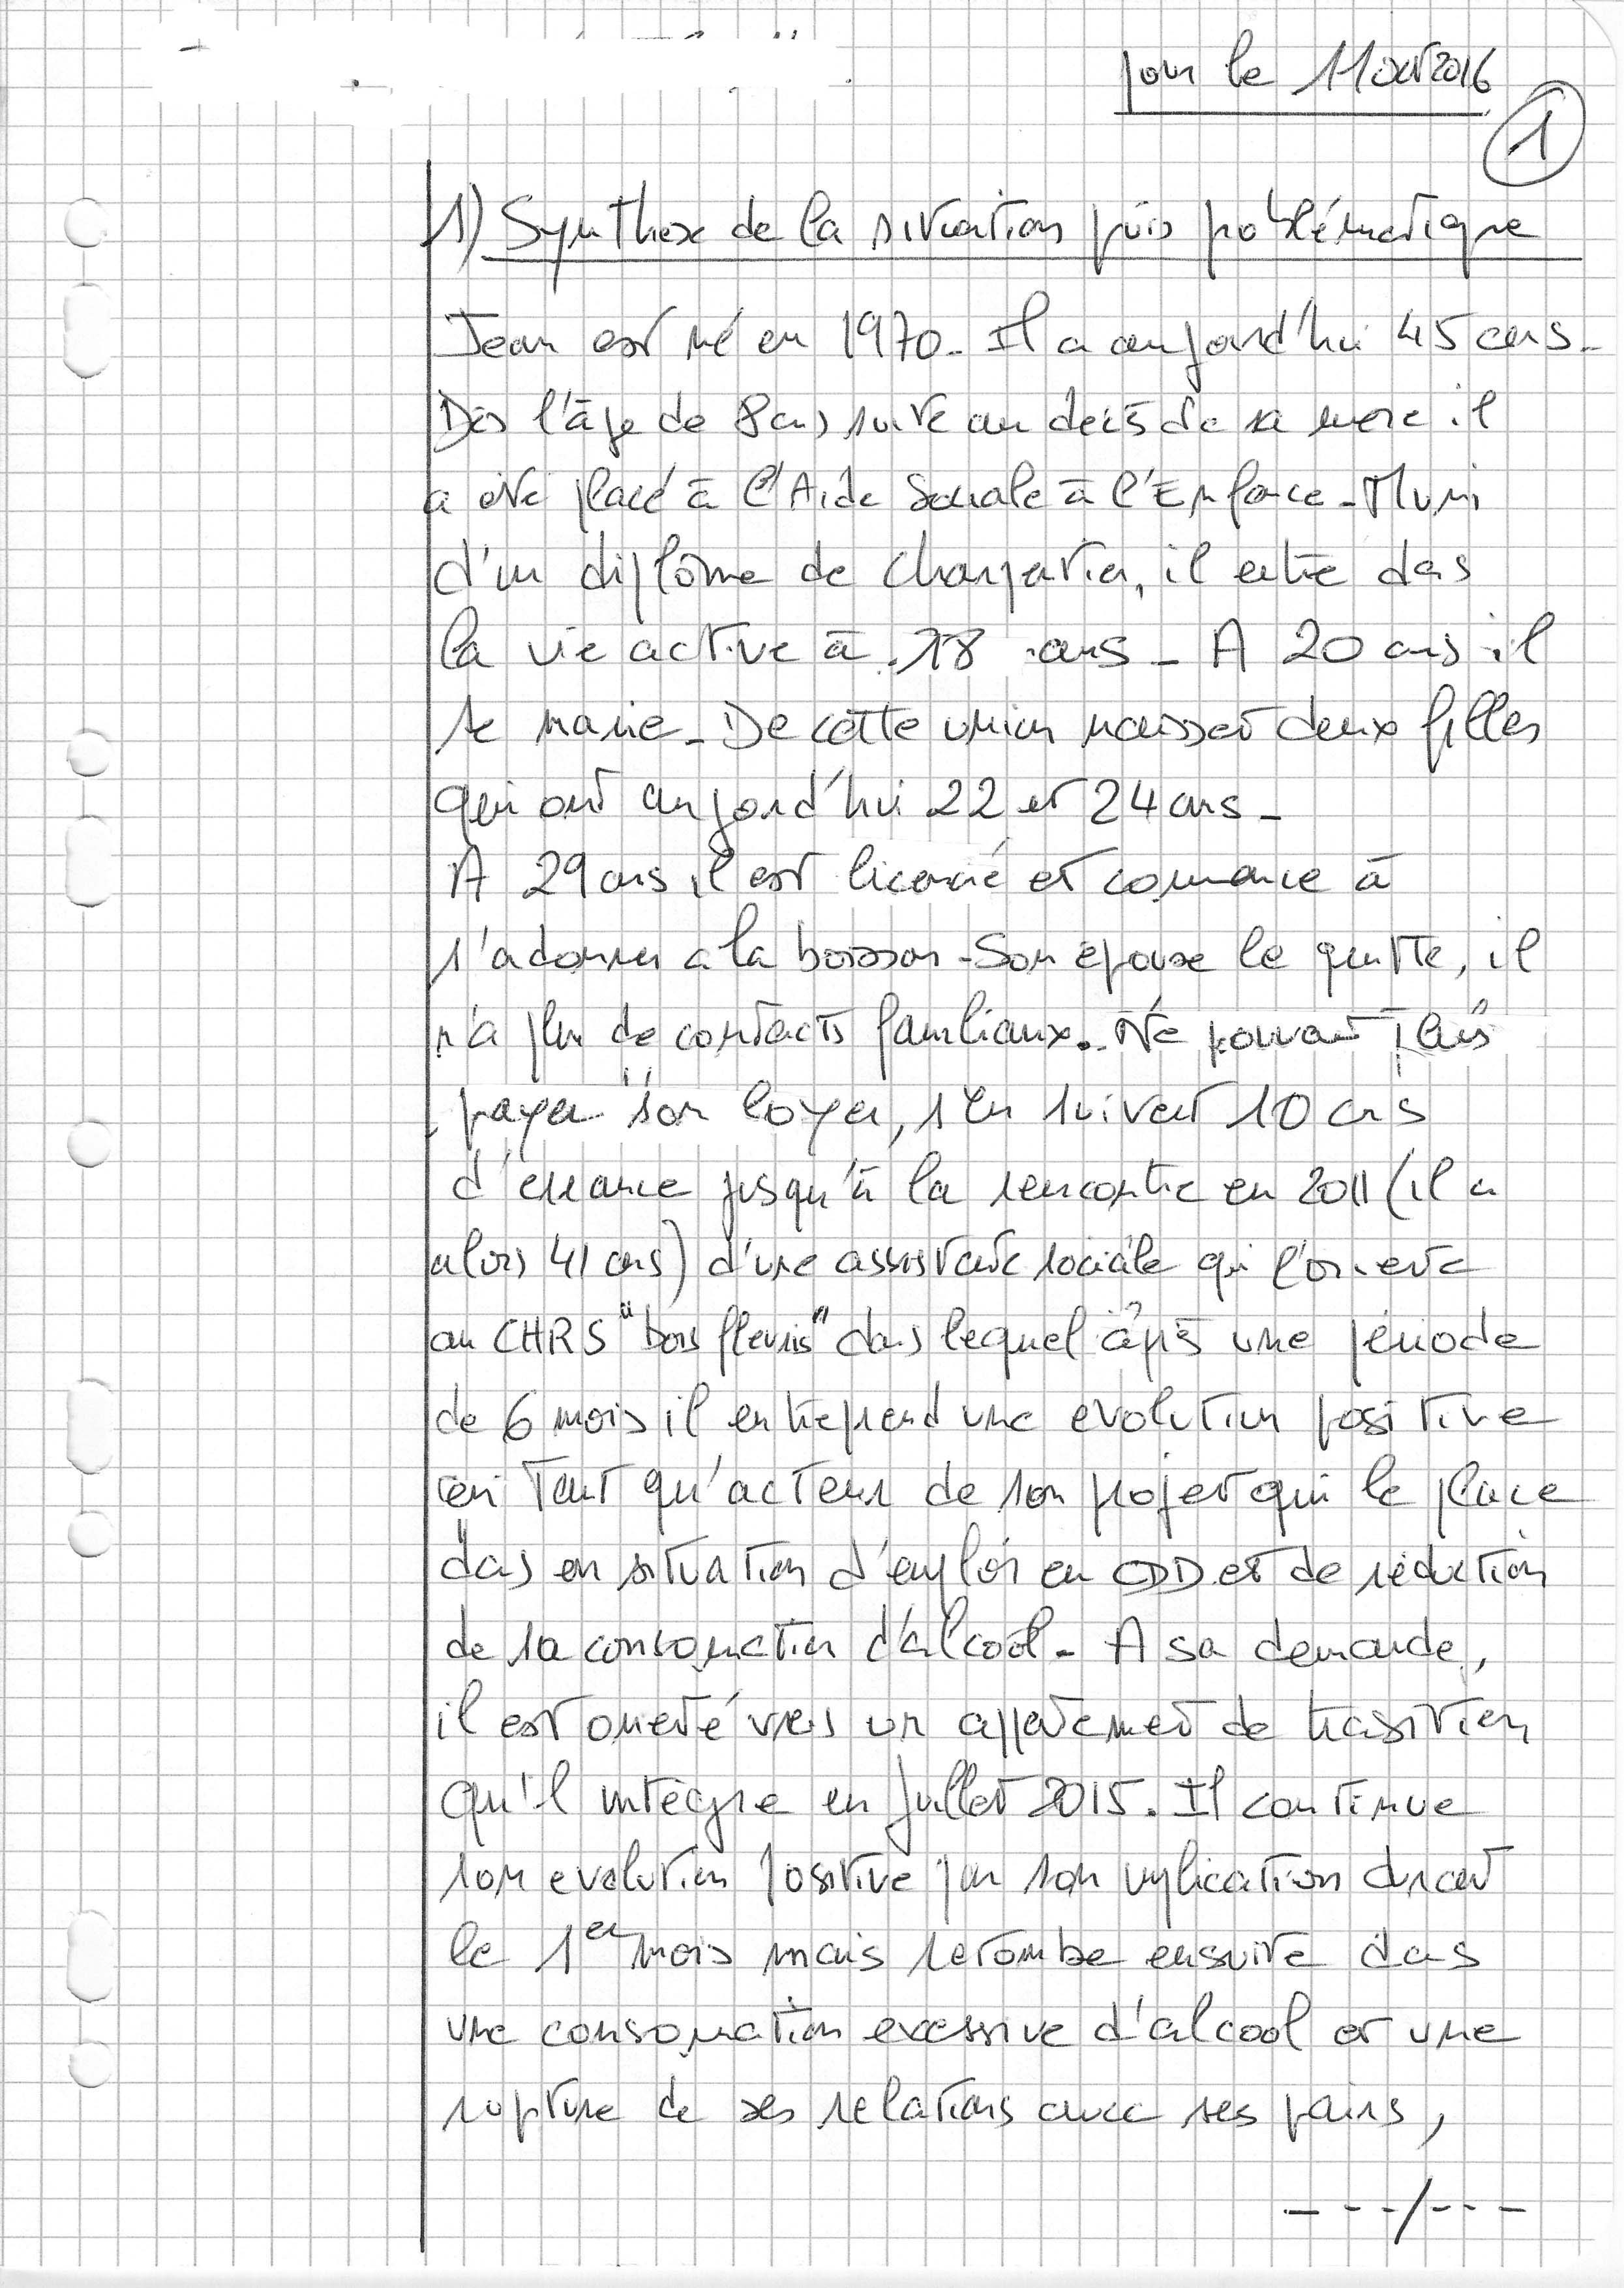 pour le 11 oct 2016
1
1) Synthèse de la situation puis problématique
Jean est né en 1970. Il a aujourd'hui 45 ans.
Dès l'âge de 8 ans suite au décès de sa mere il
a été placé à l'Aide Sociale à l'Enfance. Muni
d'un diplôme de charpentier, il entre dans
la vie active à 18 ans. A 20 ans il
se marie. De cette union naissent deux filles
qui ont aujourd'hui 22 et 24 ans.
A 29 ans il est licencié et commence à
s'adonner a la boisson. Son épouse le quitte, il
n'a plus de contacts familiaux. Ne pouvant plus
payer son loyer, s'en suivent 10 ans
d'errance jusqu'à la rencontre en 2011 (il a
alors 41 ans) d'une assistante sociale qui l'oriente
au CHRS "bois fleuris" dans lequel après une période
de 6 mois il entreprend une evolution positive
en tant qu'acteur de son projet qui le place
dans en situation d'emploi en CDD et de réduction
de sa consommation d'alcool. A sa demande,
il est orienté vers un appartement de transition
qu'il intègre en Juillet 2015. Il continue
son evolution positive par son implication durant
le 1er mois mais retombe ensuite dans
une consommation excessive d'alcool et une
rupture de ses relations avec ses pairs,
---/---